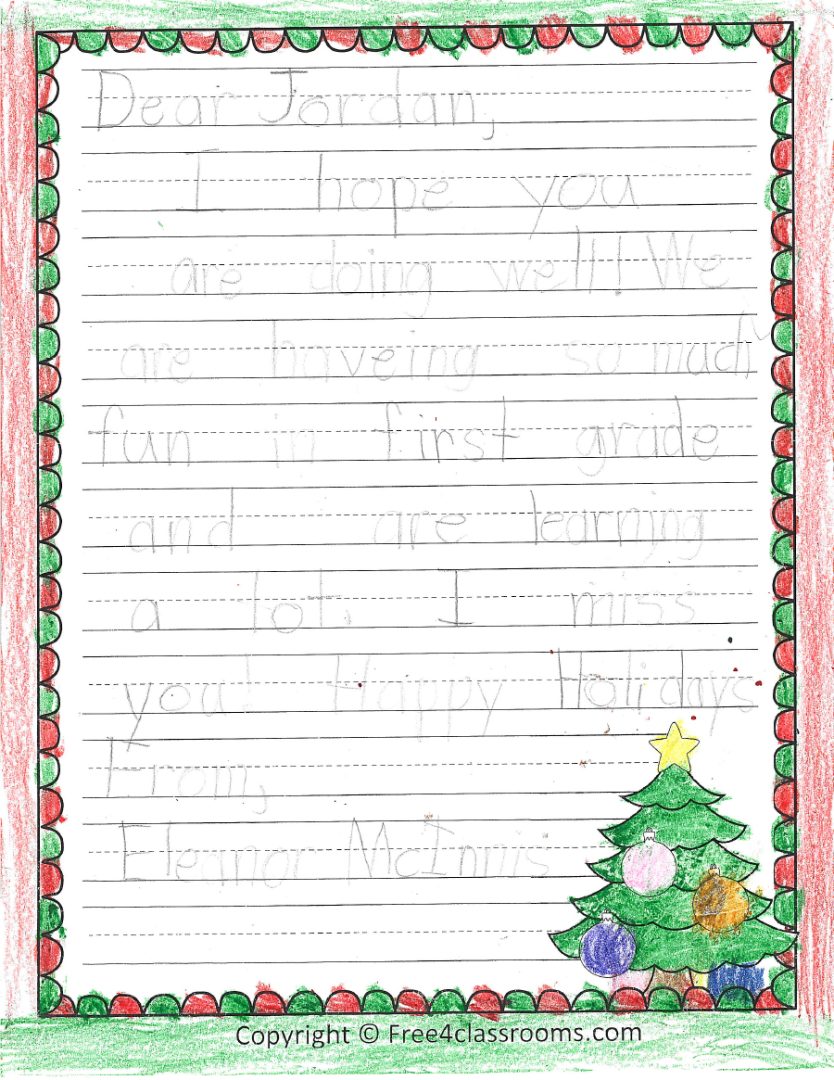 Dear Jordan,
I hope you
are doing well!! We
are haveing so much
fun in first grade
and are learning
a lot. I miss
you! Happy Holidays
From,
Eleanor McInnis
Copyright © Free4classrooms.com